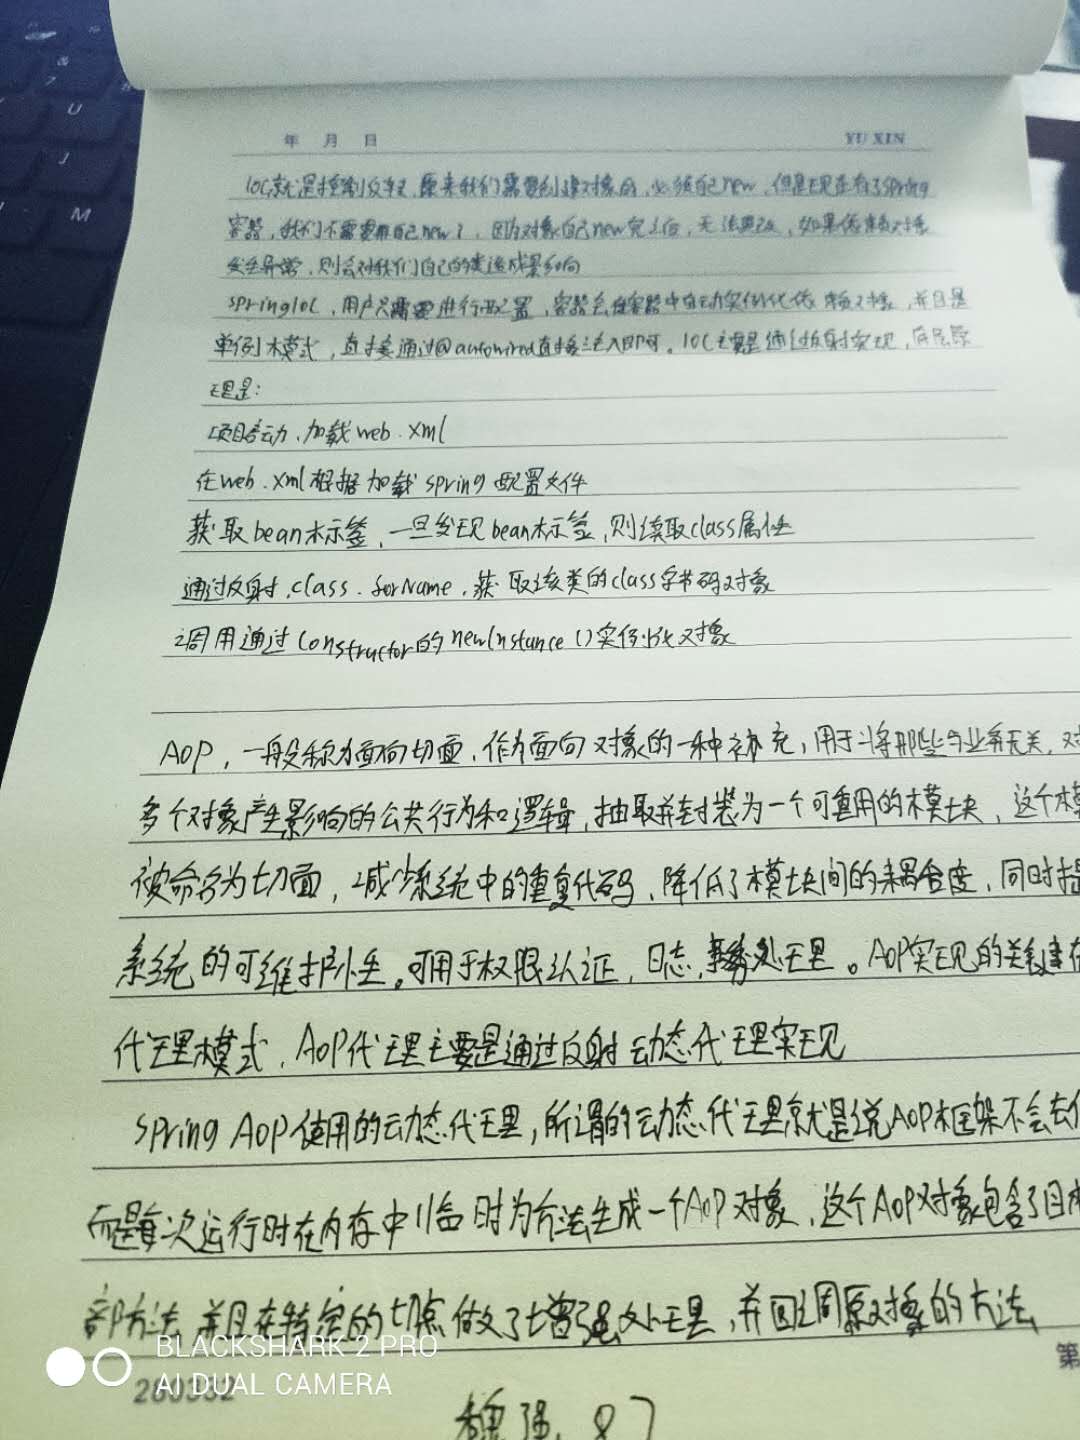 年 月 日 YU XIN
IOC就是控制反转,原来我们需要创建对象时,必须自己new,但是现在有了spring
容器,我们不需要再自己new了,因为对象自己new完之后,无法更改,如果依赖对象
发生异常,则会对我们自己的类造成影响
springIOC,用户只需要进行配置,容器会在容器中自动实例化依赖对象,并且是
单例模式,直接通过@autowired直接注入即可。IOC主要是通过反射实现,底层原
理是:
项目启动,加载web.xml
在web.xml根据加载spring配置文件
获取bean标签,一旦发现bean标签,则读取class属性
通过反射,class.forName,获取该类的class字节码对象
调用通过constructor的newInstance()实例化对象
AOP,一般称为面向切面,作为面向对象的一种补充,用于将那些与业务无关,对
多个对象产生影响的公共行为和逻辑,抽取并封装为一个可重用的模块,这个模
被命名为切面,减少系统中的重复代码,降低了模块间的耦合度,同时提
系统的可维护性。可用于权限认证,日志,事务处理。AOP实现的关键在
代理模式,AOP代理主要是通过反射动态代理实现
Spring AOP使用的动态代理,所谓的动态代理就是说AOP框架不会去
而是每次运行时在内存中临时为方法生成一个AOP对象,这个AOP对象包含了目标
部方法,并且在特定的切点做了增强处理,并回调原对象的方法
第
BLACKSHARK 2 PRO
AI DUAL CAMERA
魏强. 87